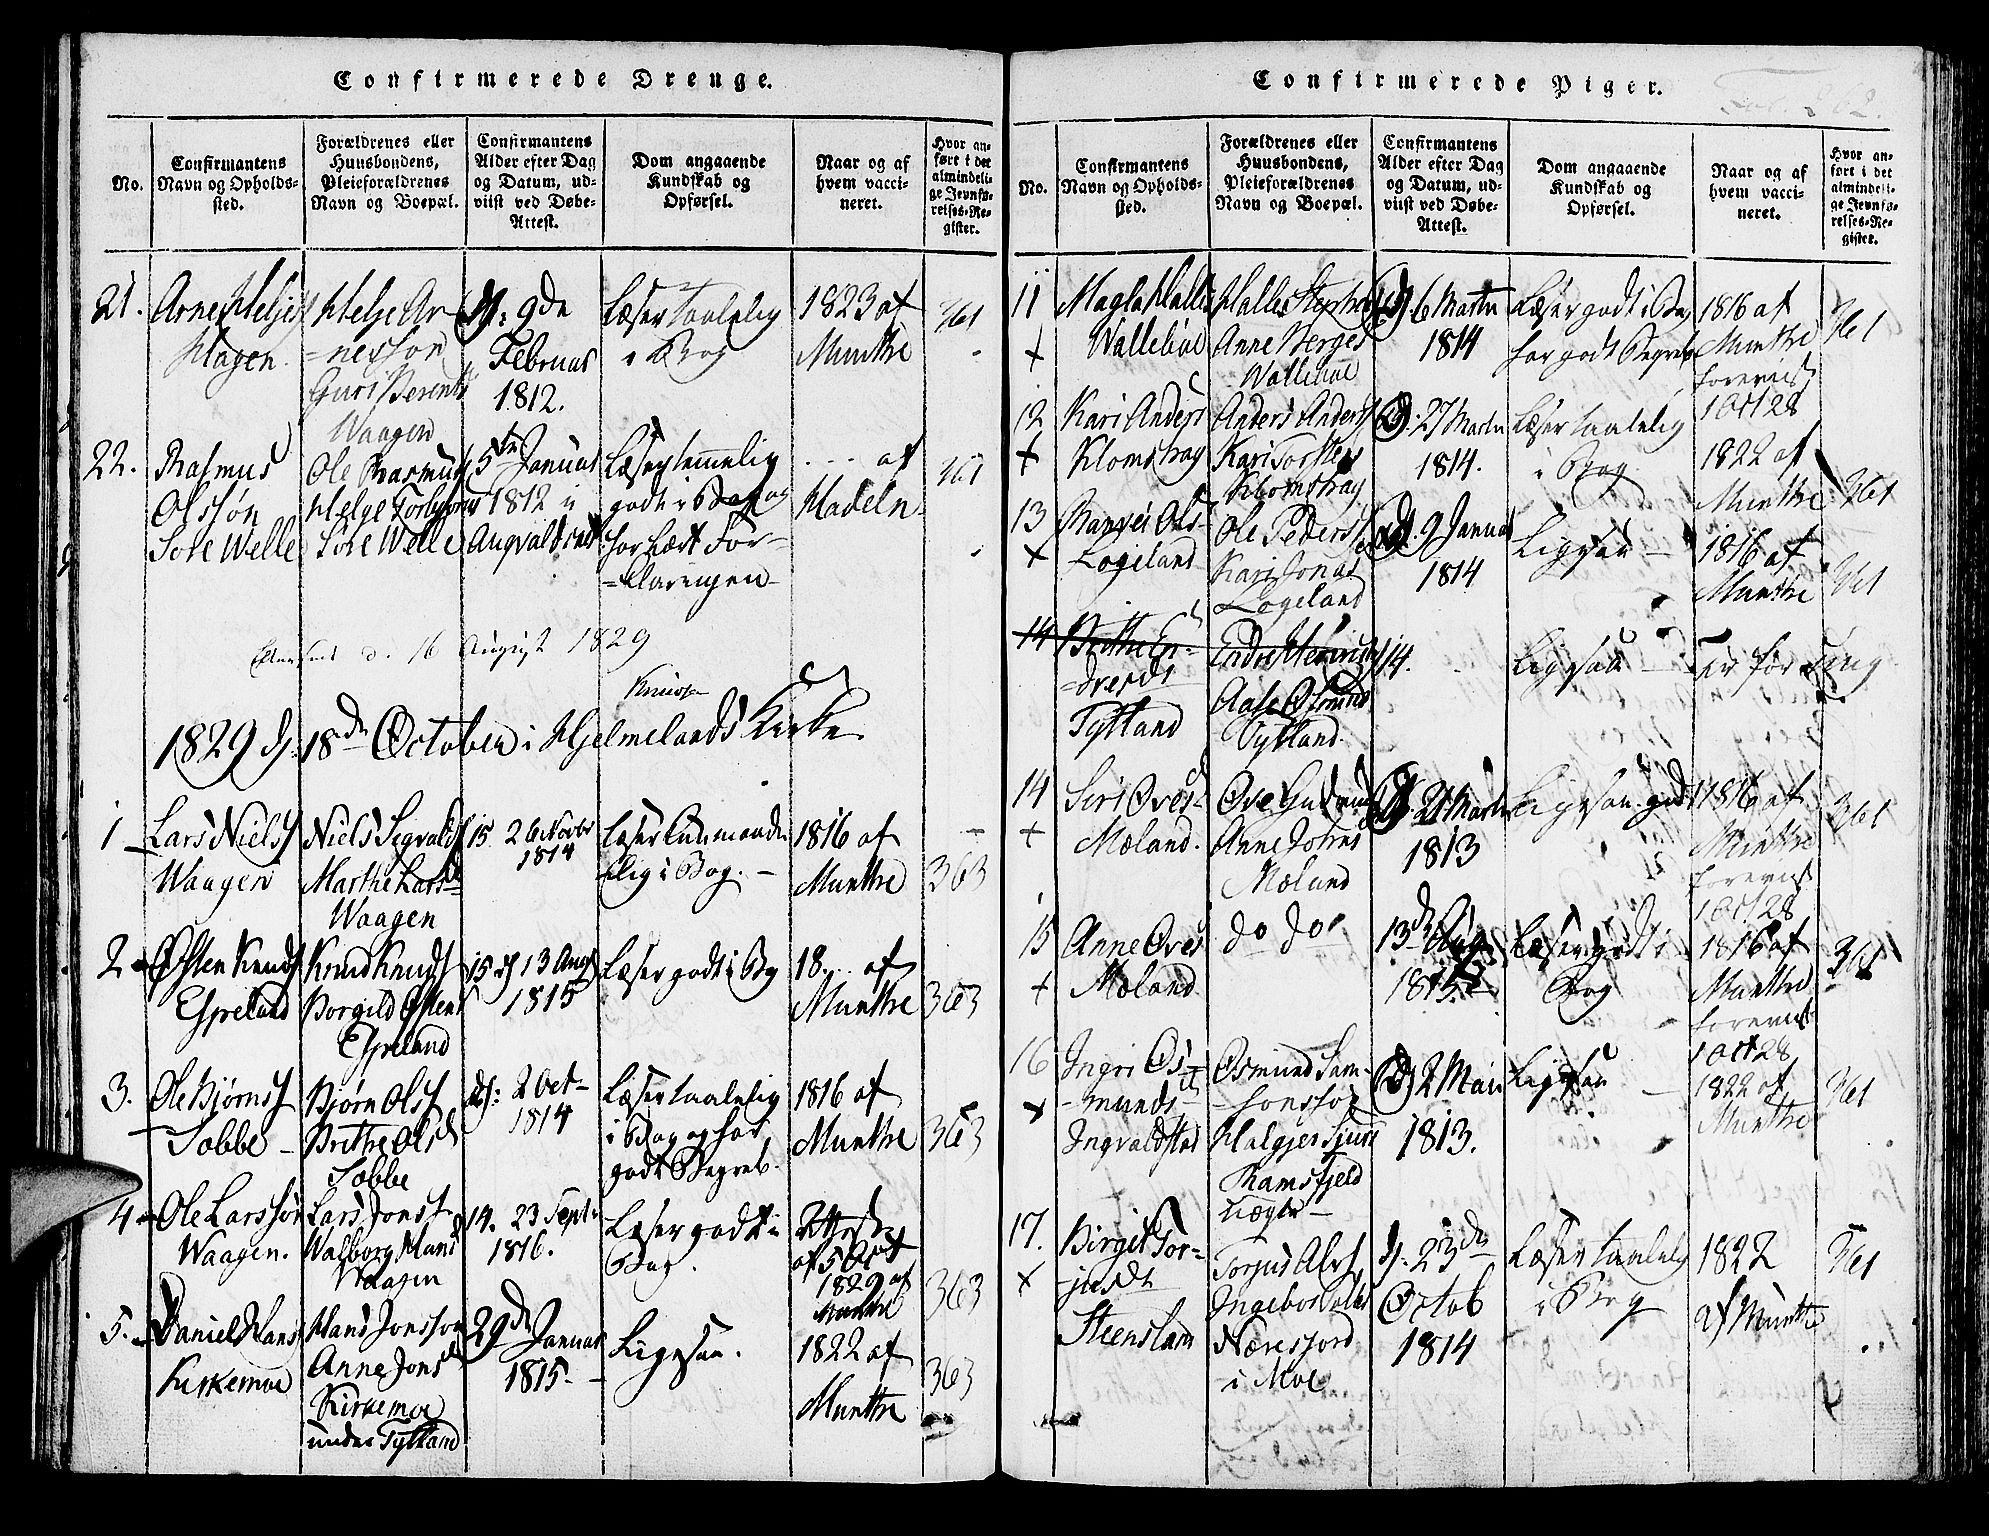 Confirmerede Drenge.
No.
Confirmantens
Navn og Opholds-
sted.
Forældrenes eller
Huusbondens,
Pleieforældrenes
Navn og Boepæl.
Confirmantens
Alder efter Dag
og Datum, ud-
viist ved Døbe-
Attest.
Dom angaaende
Kundskab og
Opførsel.
Naar og af
hvem vacci-
neret.
Hvor an-
ført i det
almindeli-
ge Jevnfø-
relses-Re-
gister.
21.
Arne Helges
Hagen
Helge Ar-
=nesson
Guri Berents
Waagen
D: 9de
Februar
1812.
Læser taalelig
i Bog
1823 af
Munthe
361
22.
Rasmus
Olssøn
Sore Welle
Ole Rasmuss
Helge
Sore Welle
5te Januar
1812 i
Augvaldsness
Læser temmelig
godt i Bog og
har lært For-
=klaringen
... af
Madeln
361
d. 16 August 1829
1829 d: 18de October i Hjelmelands Kirke
1
Lars Niels
Waagen
Niels Sigvalds
Marthe Larsd
Waagen
15. 26 Novbr
1814
Læser
elig i Bog. -
1816 af
Munthe
363
2
Østen Knuds
Espeland
Knud Knuds
Borgild Østens
Espeland
15 d 13 Aug
1815
Læser godt i Bog
18... af
Munthe
363
3.
Ole Bjørns
Sobbe
Bjørn Ols
Brithe Olsd
Sobbe
D: 2 Oct-
1814
Læser taalelig
i Bog og har
godt Begreb.
1816 af
Munthe
363
4
Ole Larssøn
Waagen.
Lars Jons
Walborg Hansd
Waagen
14. 23 Septr
1816.
Læser godt i
Bog.
af 5 Oct
1829 af
Munthe
363
5.
Daniel Hans
Kirkemoe
Hans Jonsson
Anne Jonsd
Kirkemoe
under Tytland
29de Januar
1815.
Ligesaa.
1822 af
Munthe
363
Confirmerede Piger.
Fol. 362.
No.
Confirmantens
Navn og Opholds-
sted.
Forældrenes eller
Huusbondens,
Pleieforældrenes
Navn og Boepæl.
Confirmantens
Alder efter Dag
og Datum, ud-
viist ved Døbe-
Attest.
Dom angaaende
Kundskab og
Opførsel.
Naar og af
hvem vacci-
neret.
Hvor an-
ført i det
almindeli-
ge Jevnfø-
relses-Re-
gister.
11
+
Magla Halles
Walleboe
Halle
Anne Berges
Walleboe
D. 6 Martz
1814
Læser godt i Bog
har godt Begreb
1816 af
Munthe
forevist
1 Oct 28
361
12
+
Kari Anders
Klomstrag
Anders Anders
Kari Torstens
Klomstrag
D. 27 Martz
1814.
Læser taalelig
i Bog
1822 af
Munthe
361
13
+
Rangei Ols-
Løgeland
Ole Peders
Kari Jonas
Løgeland
D. 9 Januar
1814
Ligesaa
1816 af
Munthe
361
14
Brithe En-
=dresdt
Tytland
Endre
Aase Osmund
Tytland
14.
Ligesaa
Er før
14
+
Siri Oves-
Mæland.
Ove Gudmund
Anne Johns
Mæland
D. 21 Martz
1813
Ligesaa godt
1816 af
Munthe
forevist
1 Oct 28
361
15
+
Anne Oves
Mæland
do do
13de Aug
1815
Læser godt i
Bog
1816 af
Munthe
forevist
1 Oct 28
361
16
+
Ingri Os-
-munds-
Ingvaldstad
Osmund Sam-
-sonssøn
Halgjer Sjurs
Ramsfjeld
D 2 Mai
1813.
Ligesaa
1822 af
Munthe
361
17.
+
Birgit Tor-
-jusdt
Steensland
Torjus Alvs
Ingebor Olds
Næresfjord
i Moe
D. 23de
Octob
1814
Læser taalelig
i Bog
1822
af Munthe
361